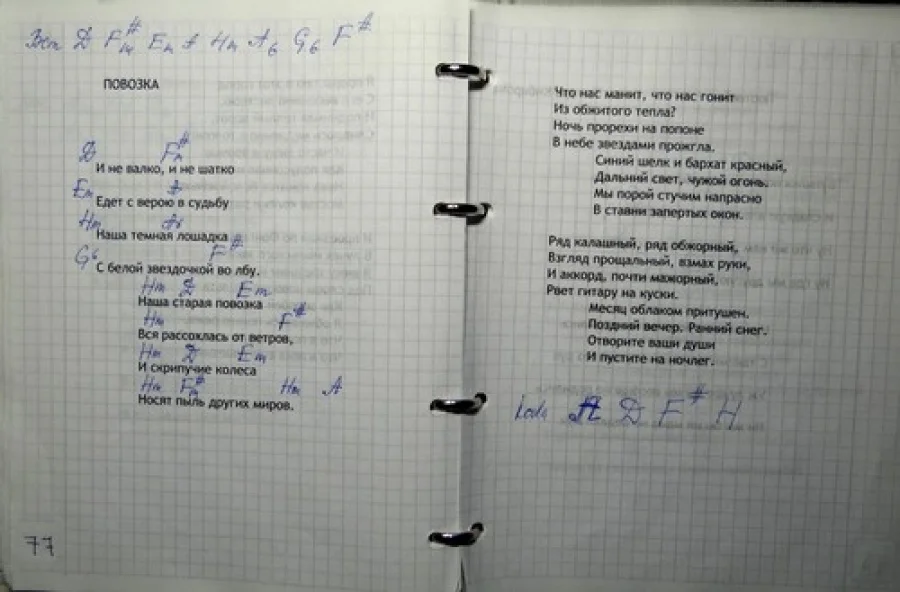 Вст D F#m Em A Hm A6 G6 F#
ПОВОЗКА
D F#m
И не валко, и не шатко
Em A
Едет с верою в судьбу
Hm A6
Наша темная лошадка
G6 F#
С белой звездочкой во лбу.
Hm D Em
Наша старая повозка
Hm F#
Вся рассохлась от ветров,
Hm D Em
И скрипучие колеса
Hm F#m Hm A
Носят пыль других миров.
77
Что нас манит, что нас гонит
Из обжитого тепла?
Ночь прорехи на попоне
В небе звездами прожгла.
Синий шелк и бархат красный,
Дальний свет, чужой огонь.
Мы порой стучим напрасно
В ставни запертых окон.
Ряд калашный, ряд обжорный,
Взгляд прощальный, взмах руки,
И аккорд, почти мажорный,
Рвет гитару на куски.
Месяц облаком притушен.
Поздний вечер. Ранний снег.
Отворите ваши души
И пустите на ночлег.
A D F# H